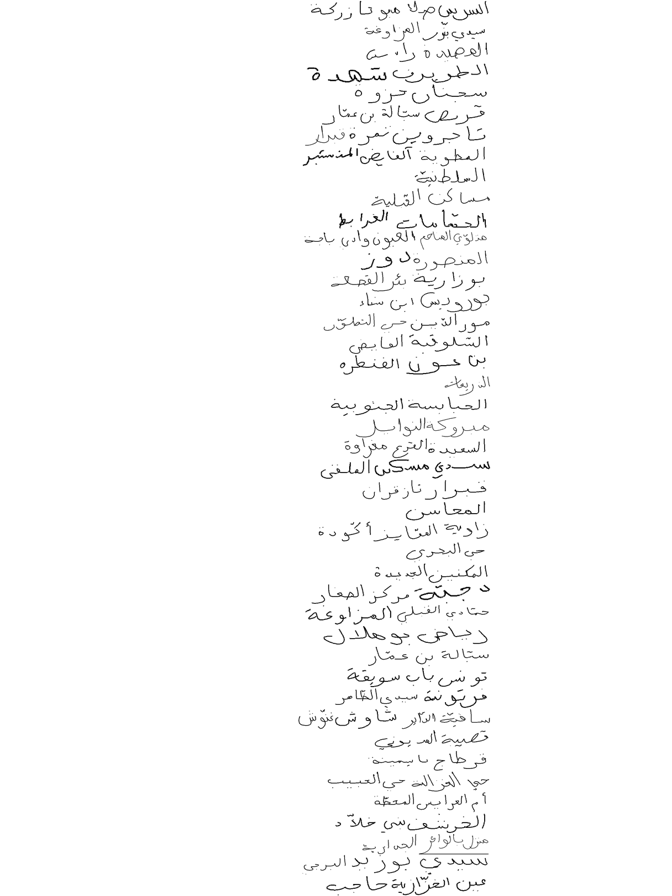 السرس صلامبو تازركة
سيدي بوزيد الهراوغة
الفضيلة رادس
الطويرف شهدة
سجنان حزوة
قربص ستالة بن عمار
تاجروين نمرة قبرار
العطوية الفايض المنستير
السلطنية
مساكن القبلية
الحمامات الخرايط
العيون وادي باجة
المنصورة دوز
بوزارية بئر القصعة
بورويس ابن سناء
نور الدين حي
السلوقية الفايض
بن عون القنطرة
الدريعات
الحبابسة الجنوبية
مبروكة النوايل
السعيدة القرع مغراوة
سيدي مسكين العلفي
قبرار تازقران
المحاسن
زاوية الفتايز أكودة
حي البحري
المكنين الجديدة
دجبّة مركز الصغار
حمادي القبلي المزاوغة
رياض بوهلال
ستالة بن عمّار
تونس باب سويقة
فريانة سيدي الظاهر
ساقية الداير شاوش غنّوش
قصيبة المديوني
قرطاج ياسمينة
حي الغزالة حي الحبيب
أم العرايس المحطة
الخرشف سي خلاّد
منزل بالوافر الجدارية
سيدي بوزيد البرجي
عين الغزازية حاجب